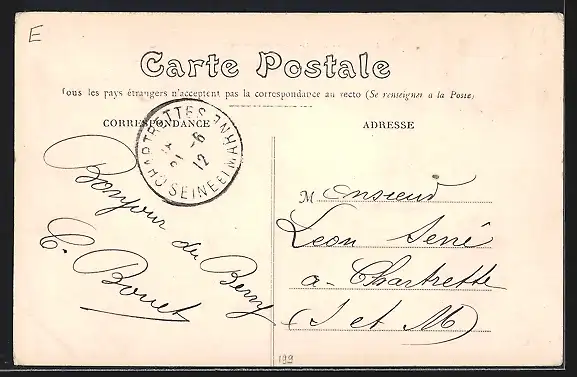 E
Carte Postale
Tous les pays étrangers n'acceptent pas la correspondance au recto (Se renseigner a la Poste)
CORRESPONDANCE
ADRESSE
CHARTRETTES
6
12
SEINE ET MARNE
Bonjour du Berry
C. Bouet
Monsieur
Leon Sené
a- Chartrette
(S et M)
199